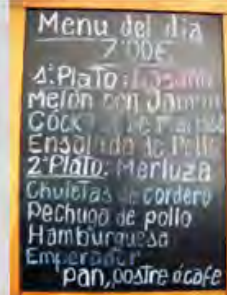 Menu del dia
7'00€
1º Plato:
Melón con Jamon
Cock de
Ensalada de Pollo
2º Plato: Merluza
Chuletas de cordero
Pechuga de pollo
Hamburguesa
Emperador
pan, postre ó cafe